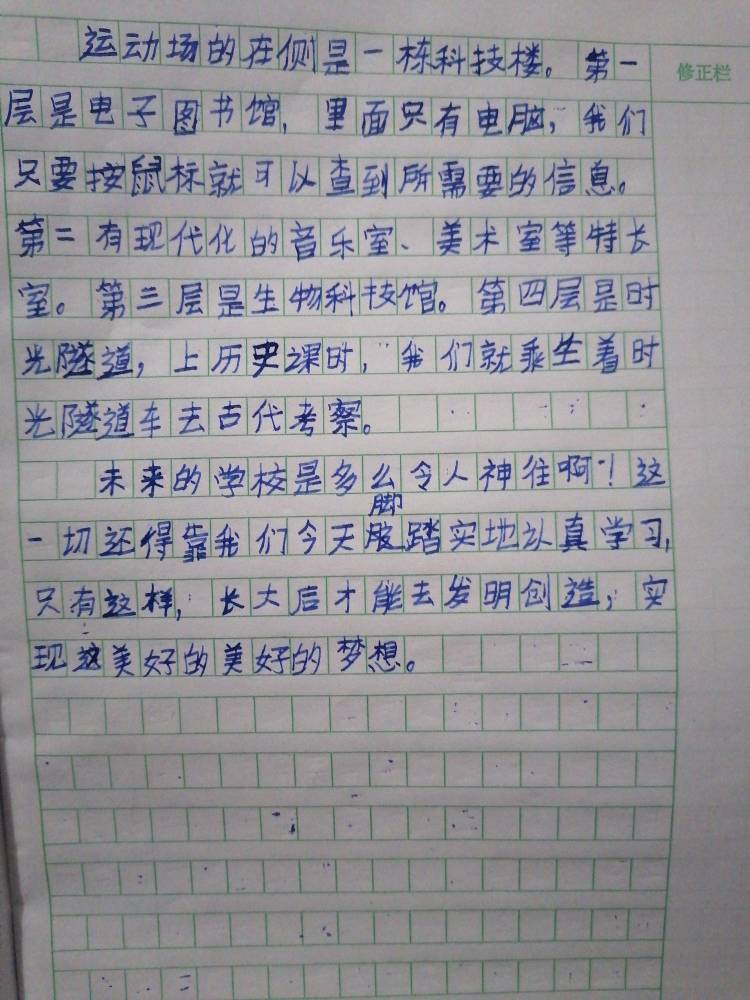 运动场的在侧是一栋科技楼。第一
修正栏
层是电子图书馆,里面只有电脑,我们
只要按鼠标就可以查到所需要的信息。
第二有现代化的音乐室、美术室等特长
室。第三层是生物科技馆。第四层是时
光隧道,上历史课时,我们就乘坐着时
光隧道车去古代考察。
未来的学校是多么令人神往啊!这
脚
一切还得靠我们今天踏实地认真学习,
只有这样,长大后才能去发明创造,实
现这美好的美好的梦想。